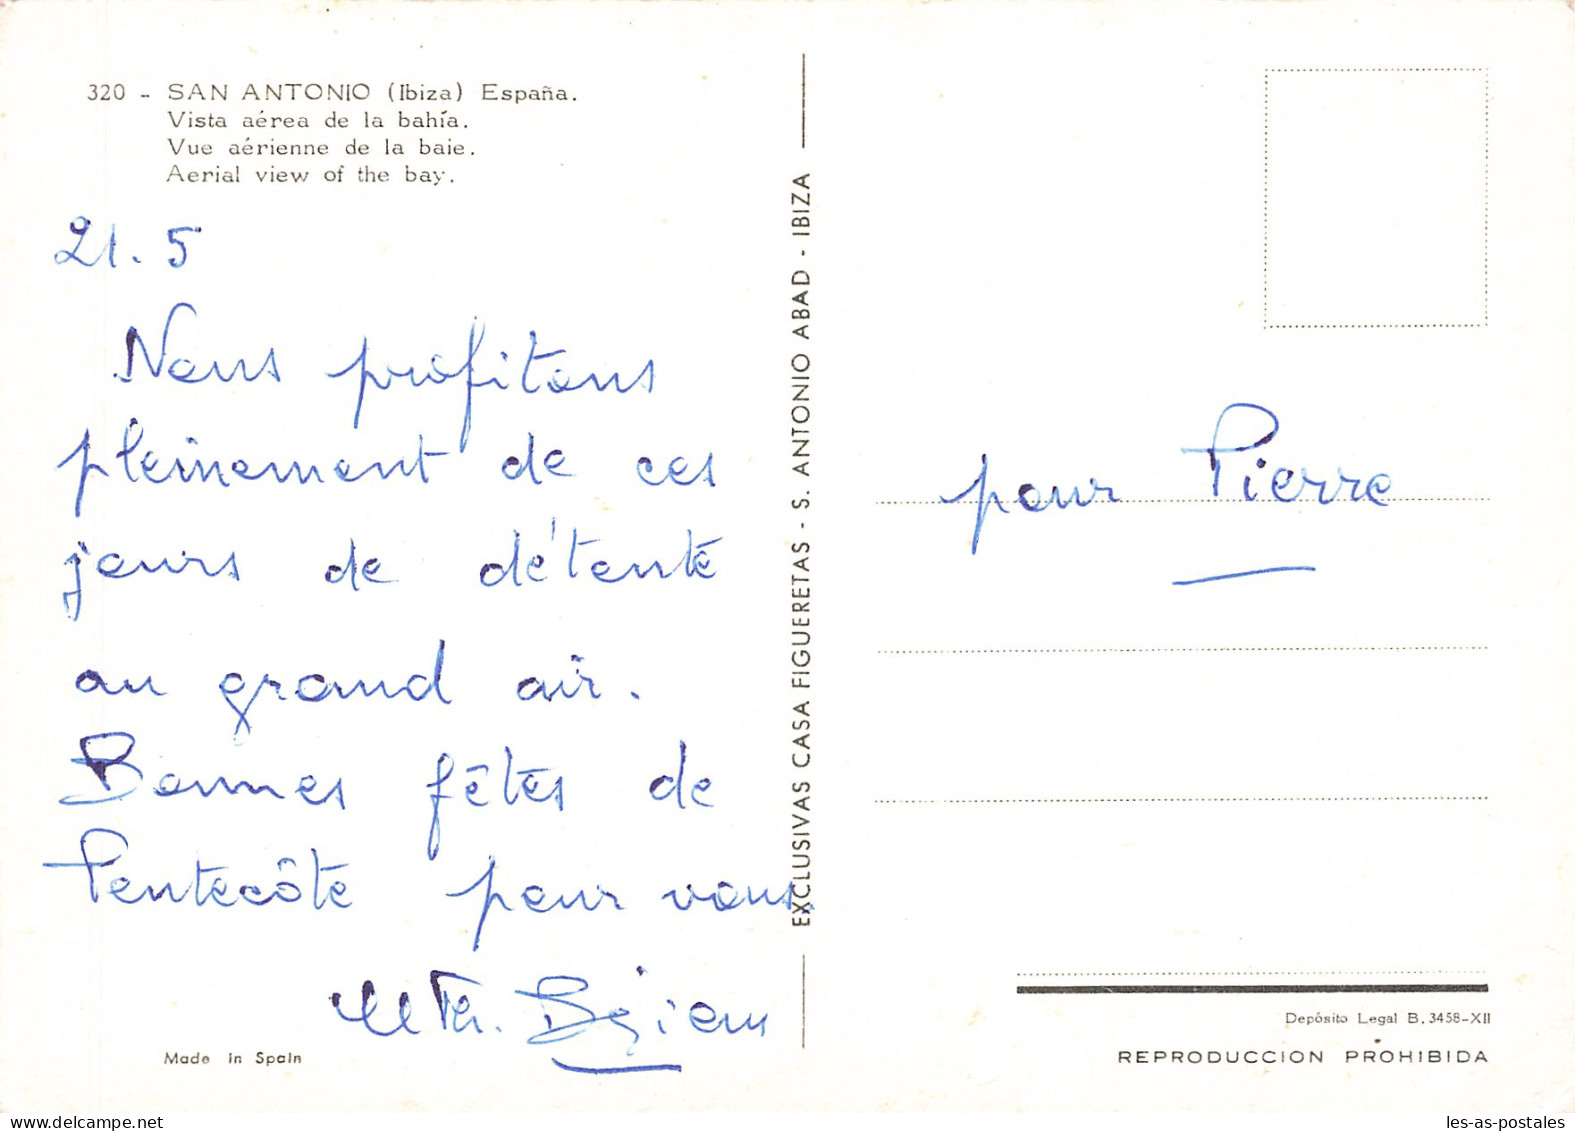 320 - SAN ANTONIO (Ibiza) España.
Vista aérea de la bahía.
Vue aérienne de la baie.
Aerial view of the bay.
21.5
Nous profitons
pleinement de ces
jours de détente
au grand air.
Bonnes fêtes de
Pentecôte pour vous.
Made in Spain
EXCLUSIVAS CASA FIGUERETAS - S. ANTONIO ABAD - IBIZA
pour Pierre
Depósito Legal B. 3458-XII
REPRODUCCION PROHIBIDA
les-as-postales